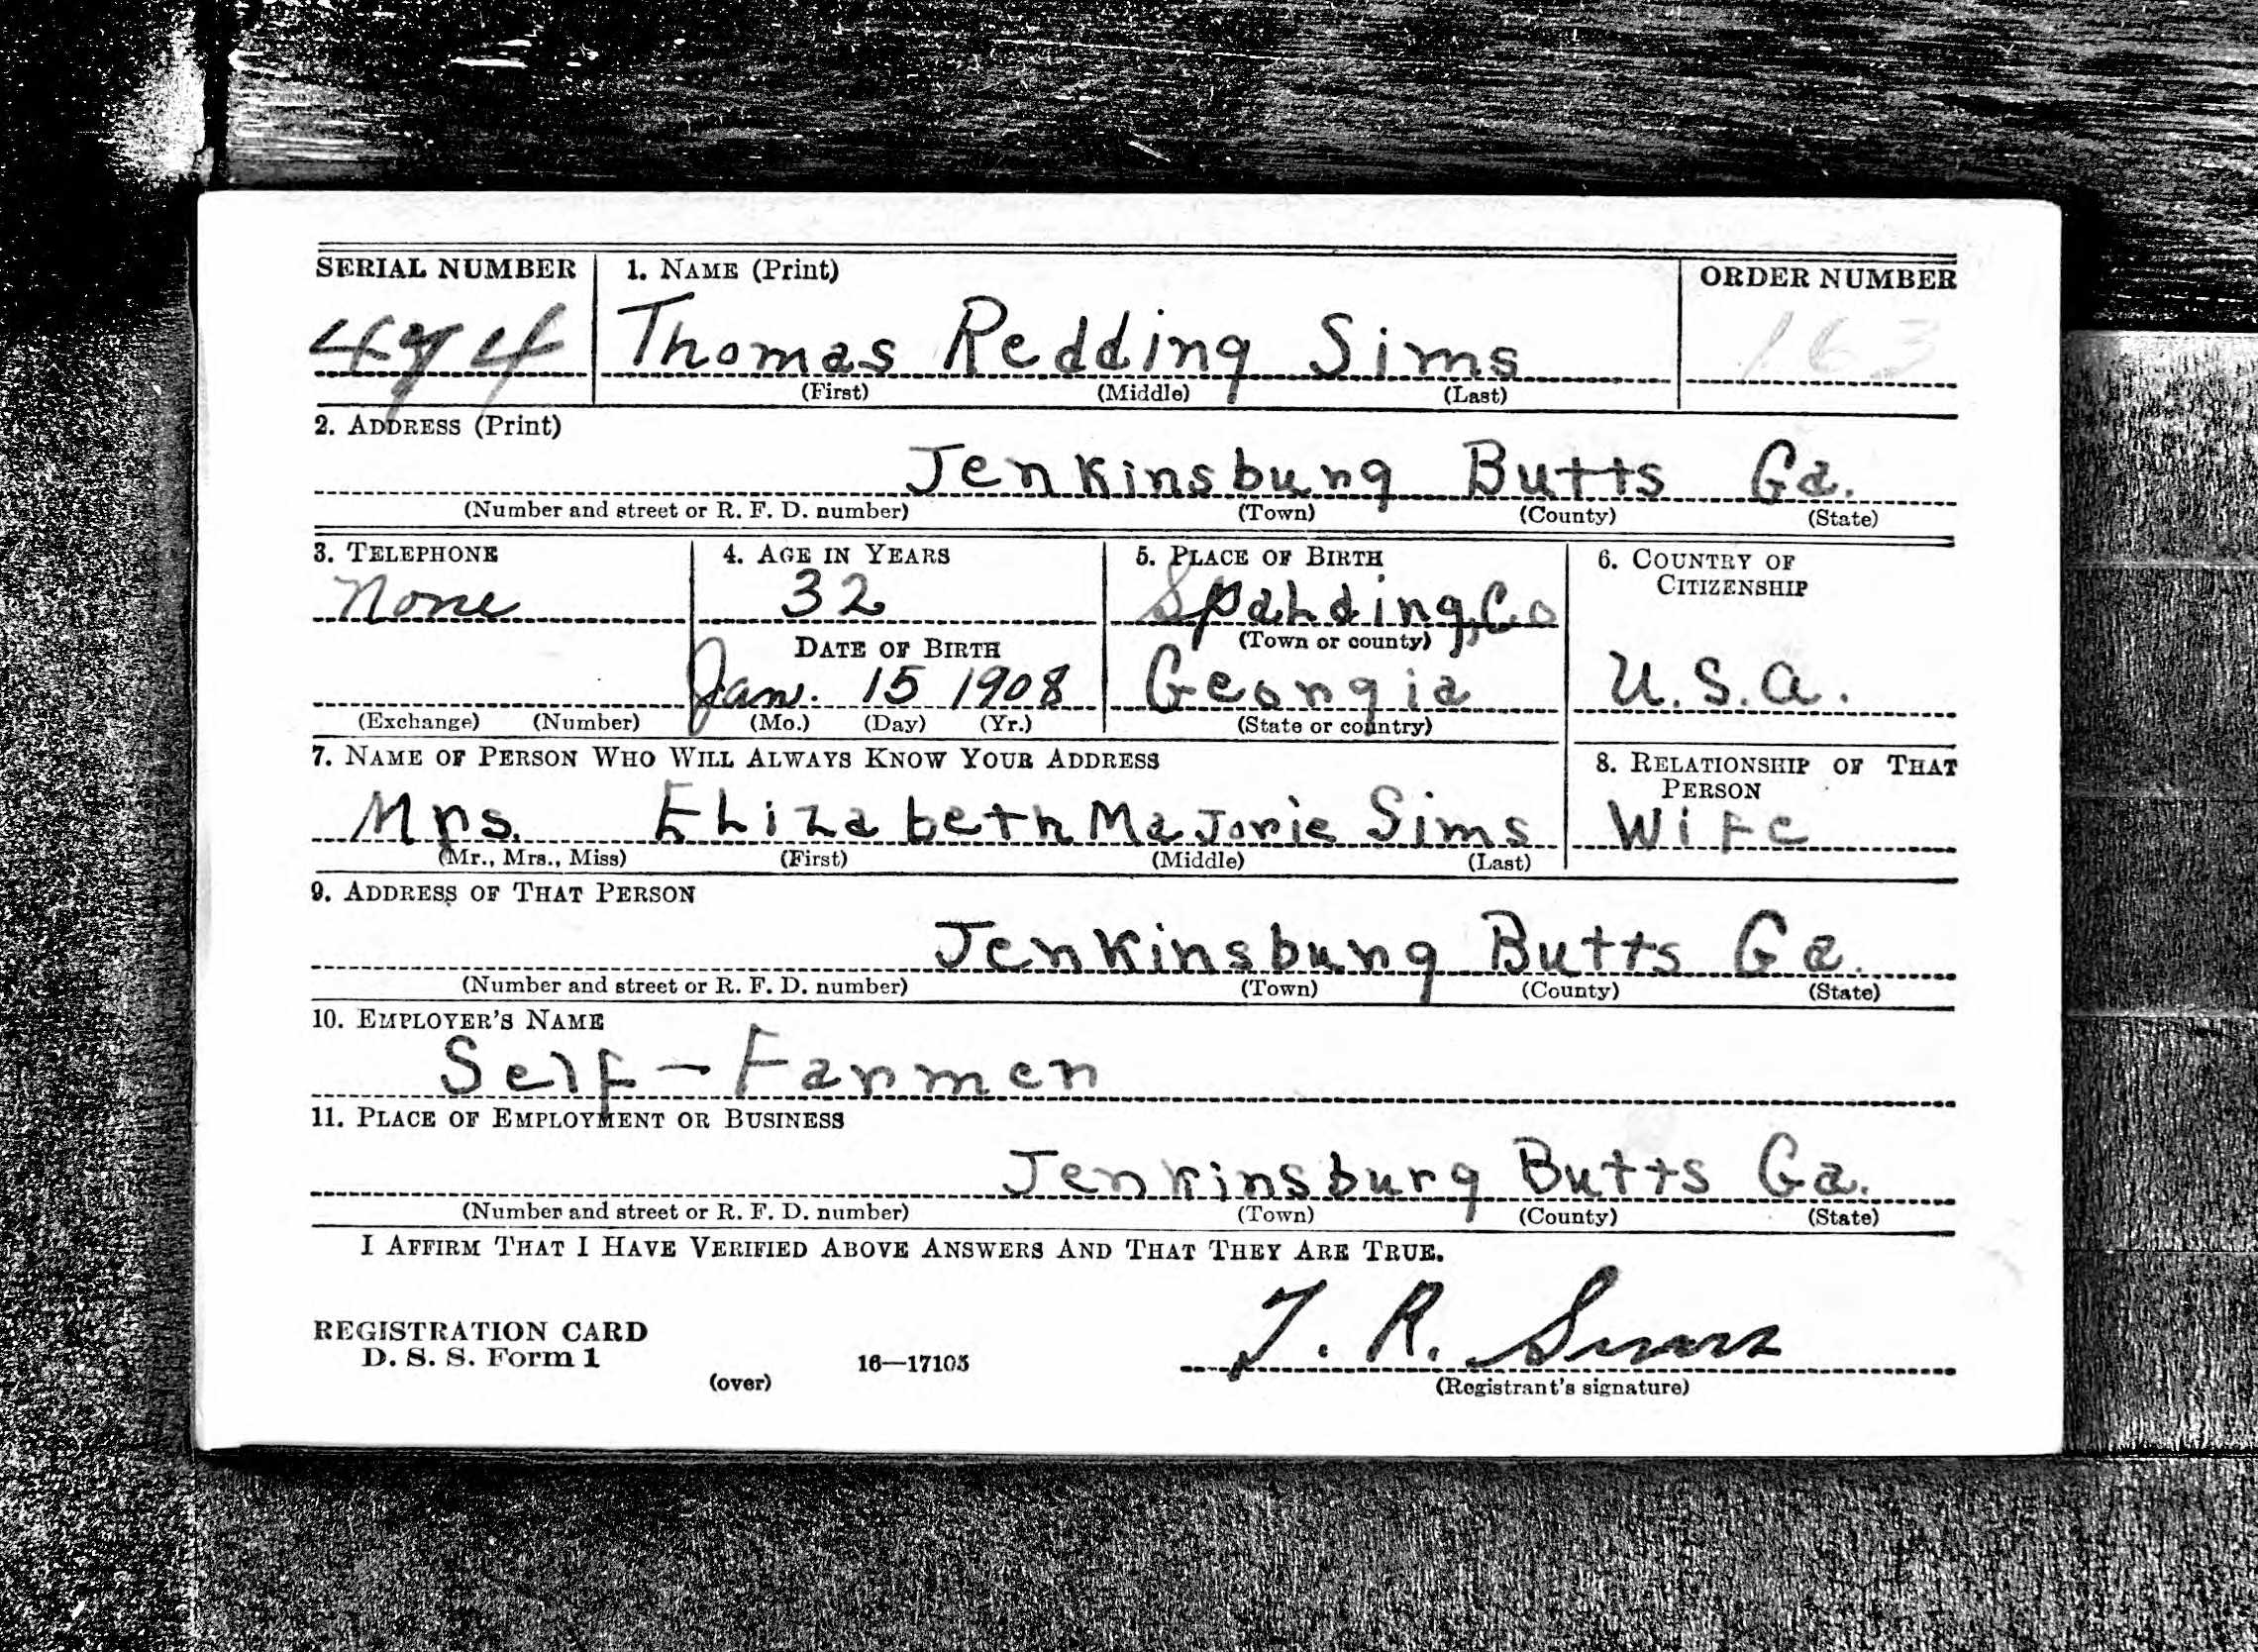 SERIAL NUMBER 1. NAME (Print) ORDER NUMBER
474 Thomas Redding Sims 163
(First) (Middle) (Last)
2. ADDRESS (Print)
Jenkinsburg Butts Ga.
(Number and street or R. F. D. number) (Town) (County) (State)
3. TELEPHONE 4. AGE IN YEARS 5. PLACE OF BIRTH 6. COUNTRY OF
CITIZENSHIP
None 32 Spalding, Co
(Town or county)
DATE OF BIRTH
Jan. 15 1908 Georgia U.S.A.
(Exchange) (Number) (Mo.) (Day) (Yr.) (State or country)
7. NAME OF PERSON WHO WILL ALWAYS KNOW YOUR ADDRESS 8. RELATIONSHIP OF THAT
PERSON
Mrs. Elizabeth Majorie Sims Wife
(Mr., Mrs., Miss) (First) (Middle) (Last)
9. ADDRESS OF THAT PERSON
Jenkinsburg Butts Ga.
(Number and street or R. F. D. number) (Town) (County) (State)
10. EMPLOYER'S NAME
Self - Farmer
11. PLACE OF EMPLOYMENT OR BUSINESS
Jenkinsburg Butts Ga.
(Number and street or R. F. D. number) (Town) (County) (State)
I AFFIRM THAT I HAVE VERIFIED ABOVE ANSWERS AND THAT THEY ARE TRUE.
REGISTRATION CARD
D. S. S. Form 1
(over) 16—17105
T. R. Sims
(Registrant's signature)